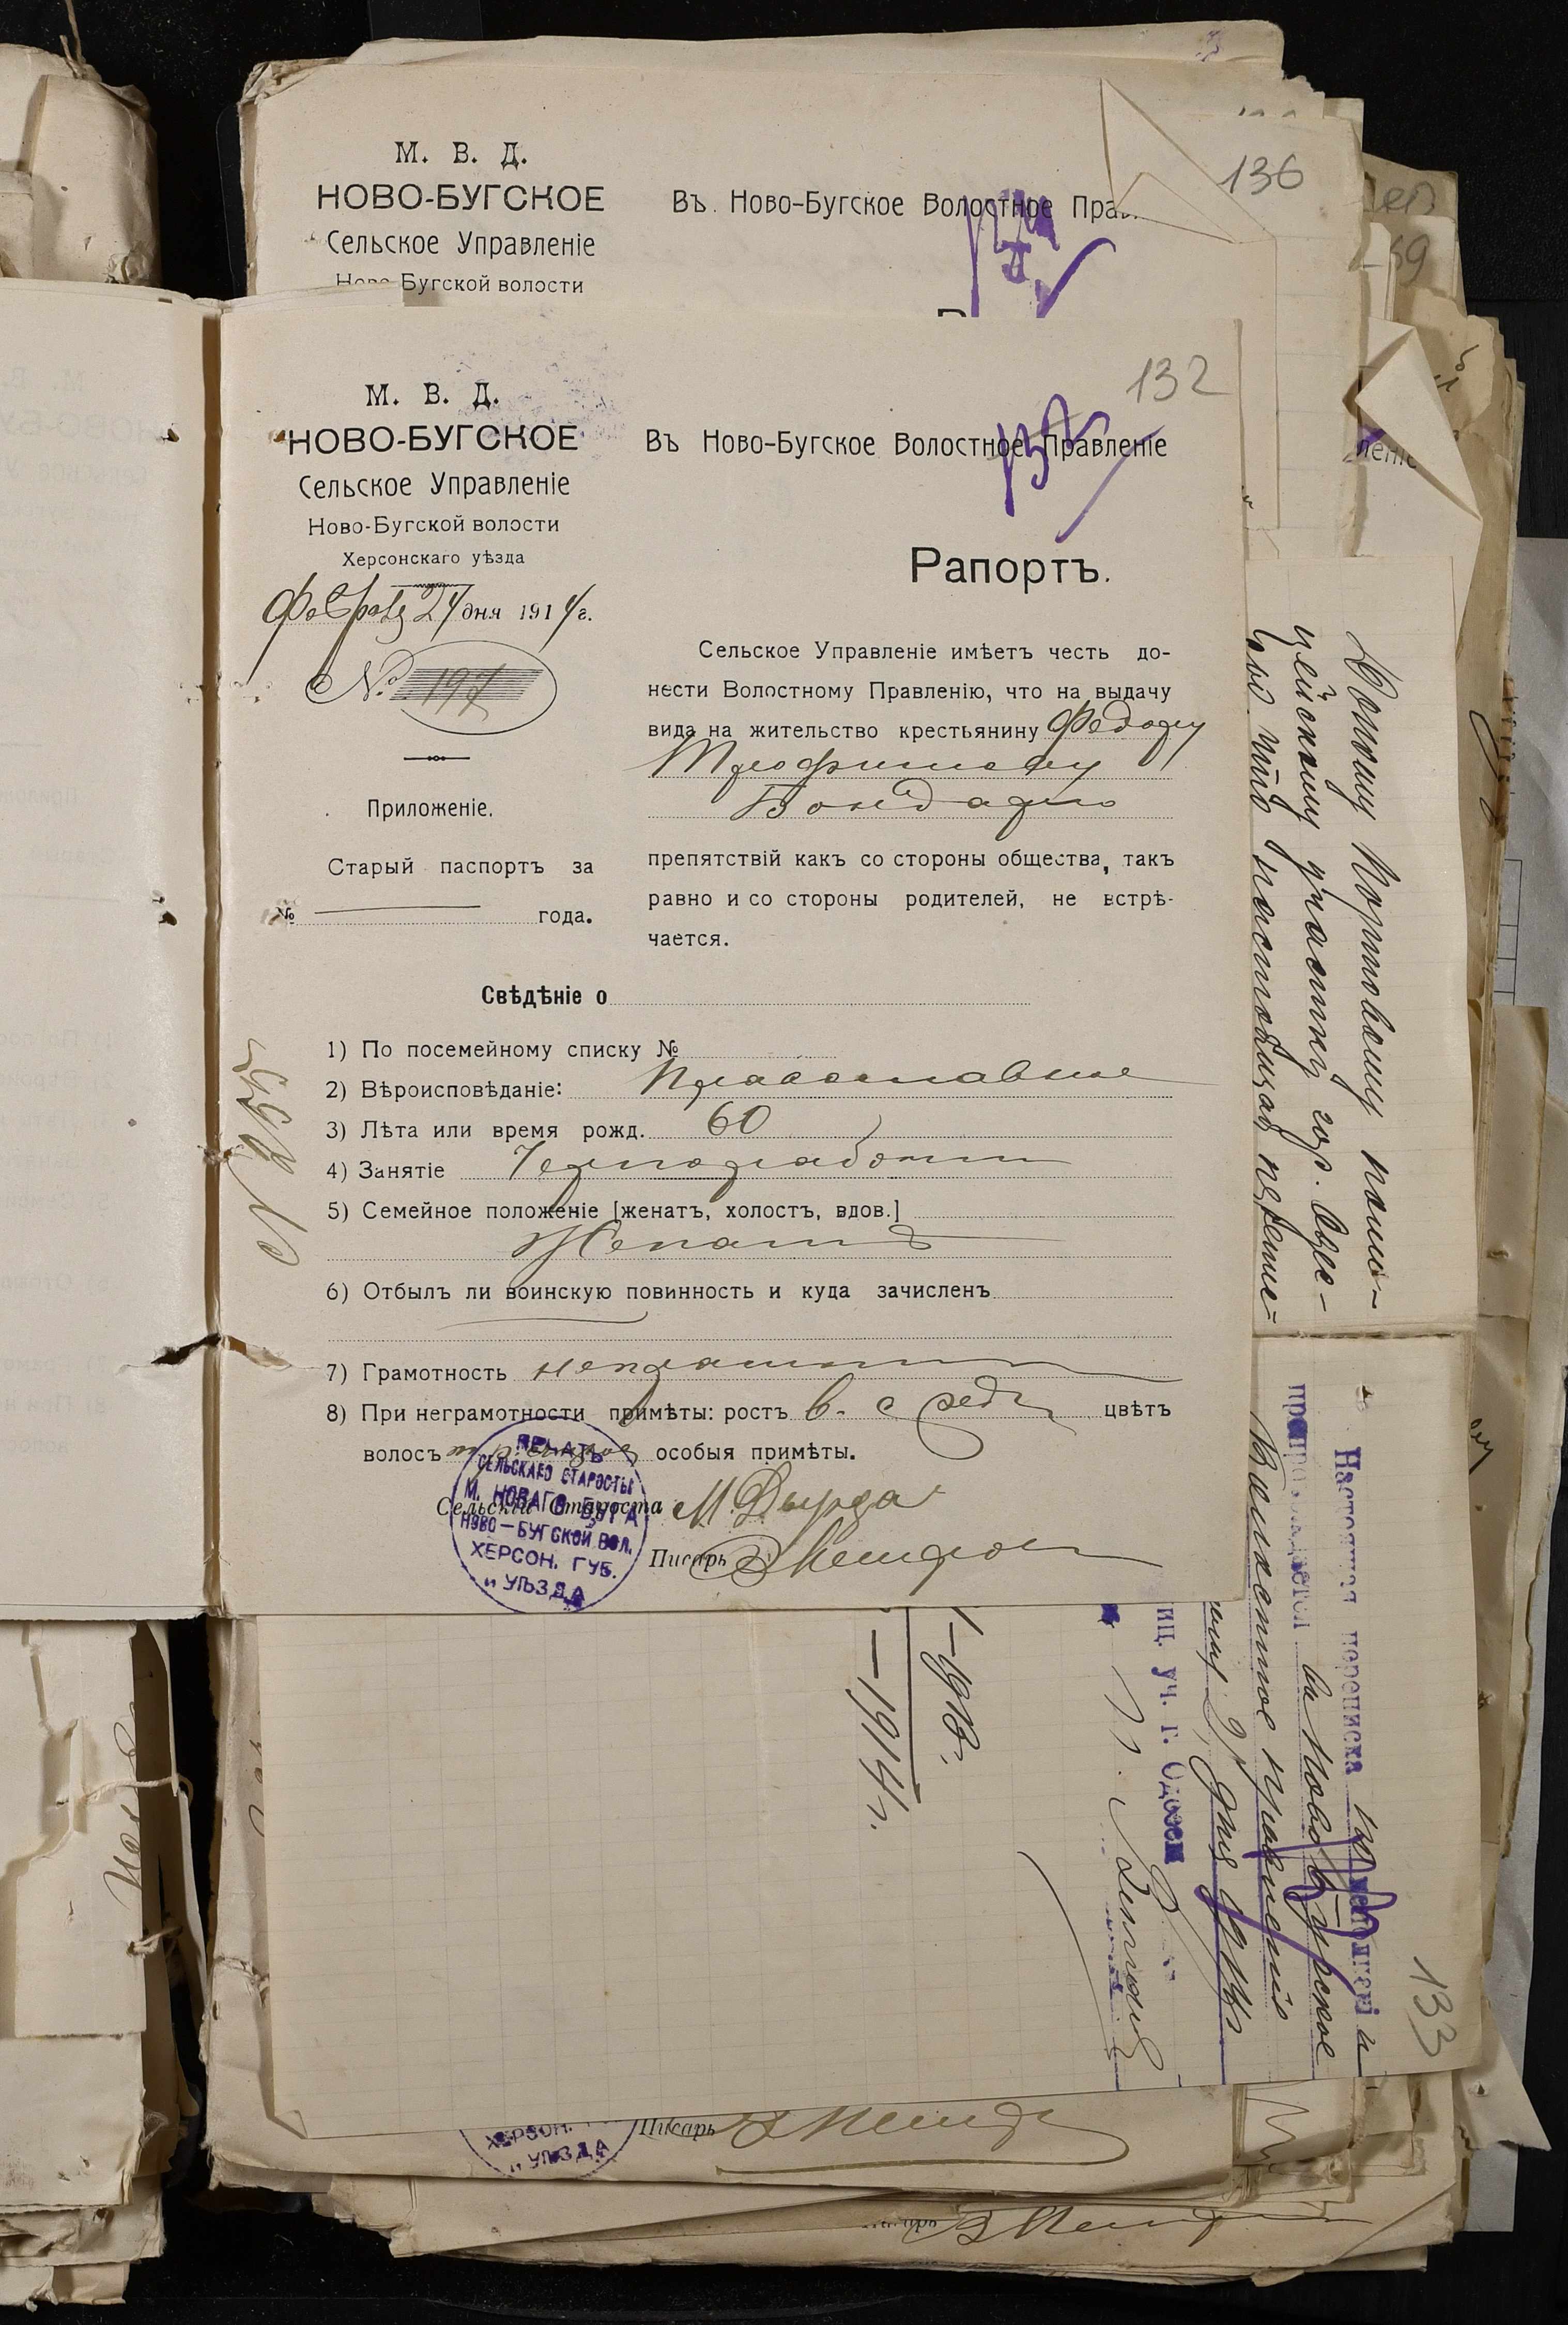 М. В. Д.
НОВО-БУГСКОЕ
Сельское Управленіе
Ново-Бугской волости
Въ Ново-Бугское Волостное Прав
136
132
М. В. Д.
НОВО-БУГСКОЕ
Сельское Управленіе
Ново-Бугской волости
Херсонскаго уѣзда
Февраля 24 дня 1914 г.
№ 197
Приложеніе.
Старый паспортъ за
№ года.
Въ Ново-Бугское Волостное Правленіе
132
Рапортъ.
Сельское Управленіе имѣетъ честь до-
нести Волостному Правленію, что на выдачу
вида на жительство крестьянину Федору
Трофимову
Бондарю
препятствій какъ со стороны общества, такъ
равно и со стороны родителей, не встрѣ-
чается.
Свѣдѣніе о
1) По посемейному списку №
2) Вѣроисповѣданіе: Православное
3) Лѣта или время рожд. 60
4) Занятіе Чернорабочій
5) Семейное положеніе [женатъ, холостъ, вдов.]
Женатъ
6) Отбылъ ли воинскую повинность и куда зачисленъ
7) Грамотность неграмотн
8) При неграмотности примѣты: ростъ в. сред цвѣтъ
волосъ особыя примѣты.
Сельскій Староста М. Дырда
Писарь
ПЕЧАТЬ
СЕЛЬСКАГО СТАРОСТЫ
М. НОВАГО БУГА
НОВО-БУГСКОЙ ВОЛ.
ХЕРСОН. ГУБ.
и УѢЗДА
леніе
Портовому поли-
цейскому участку гор. Одес-
что настоящая
133
Настоящая переписка
препровождается въ Ново-Бугское
Волостное Правленіе
уч. г. Одессы
1913г.
1914г.
ХЕРСОН.
и УѢЗДА
Писарь